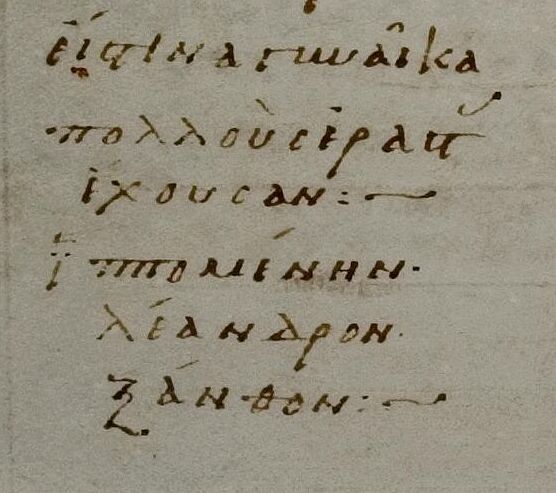 εἴς τινα γυναῖκα
πολλοὺς ἐραστ
ἔχουσαν:~
ἱππομένην·
λέανδρον·
ξάνθον:~